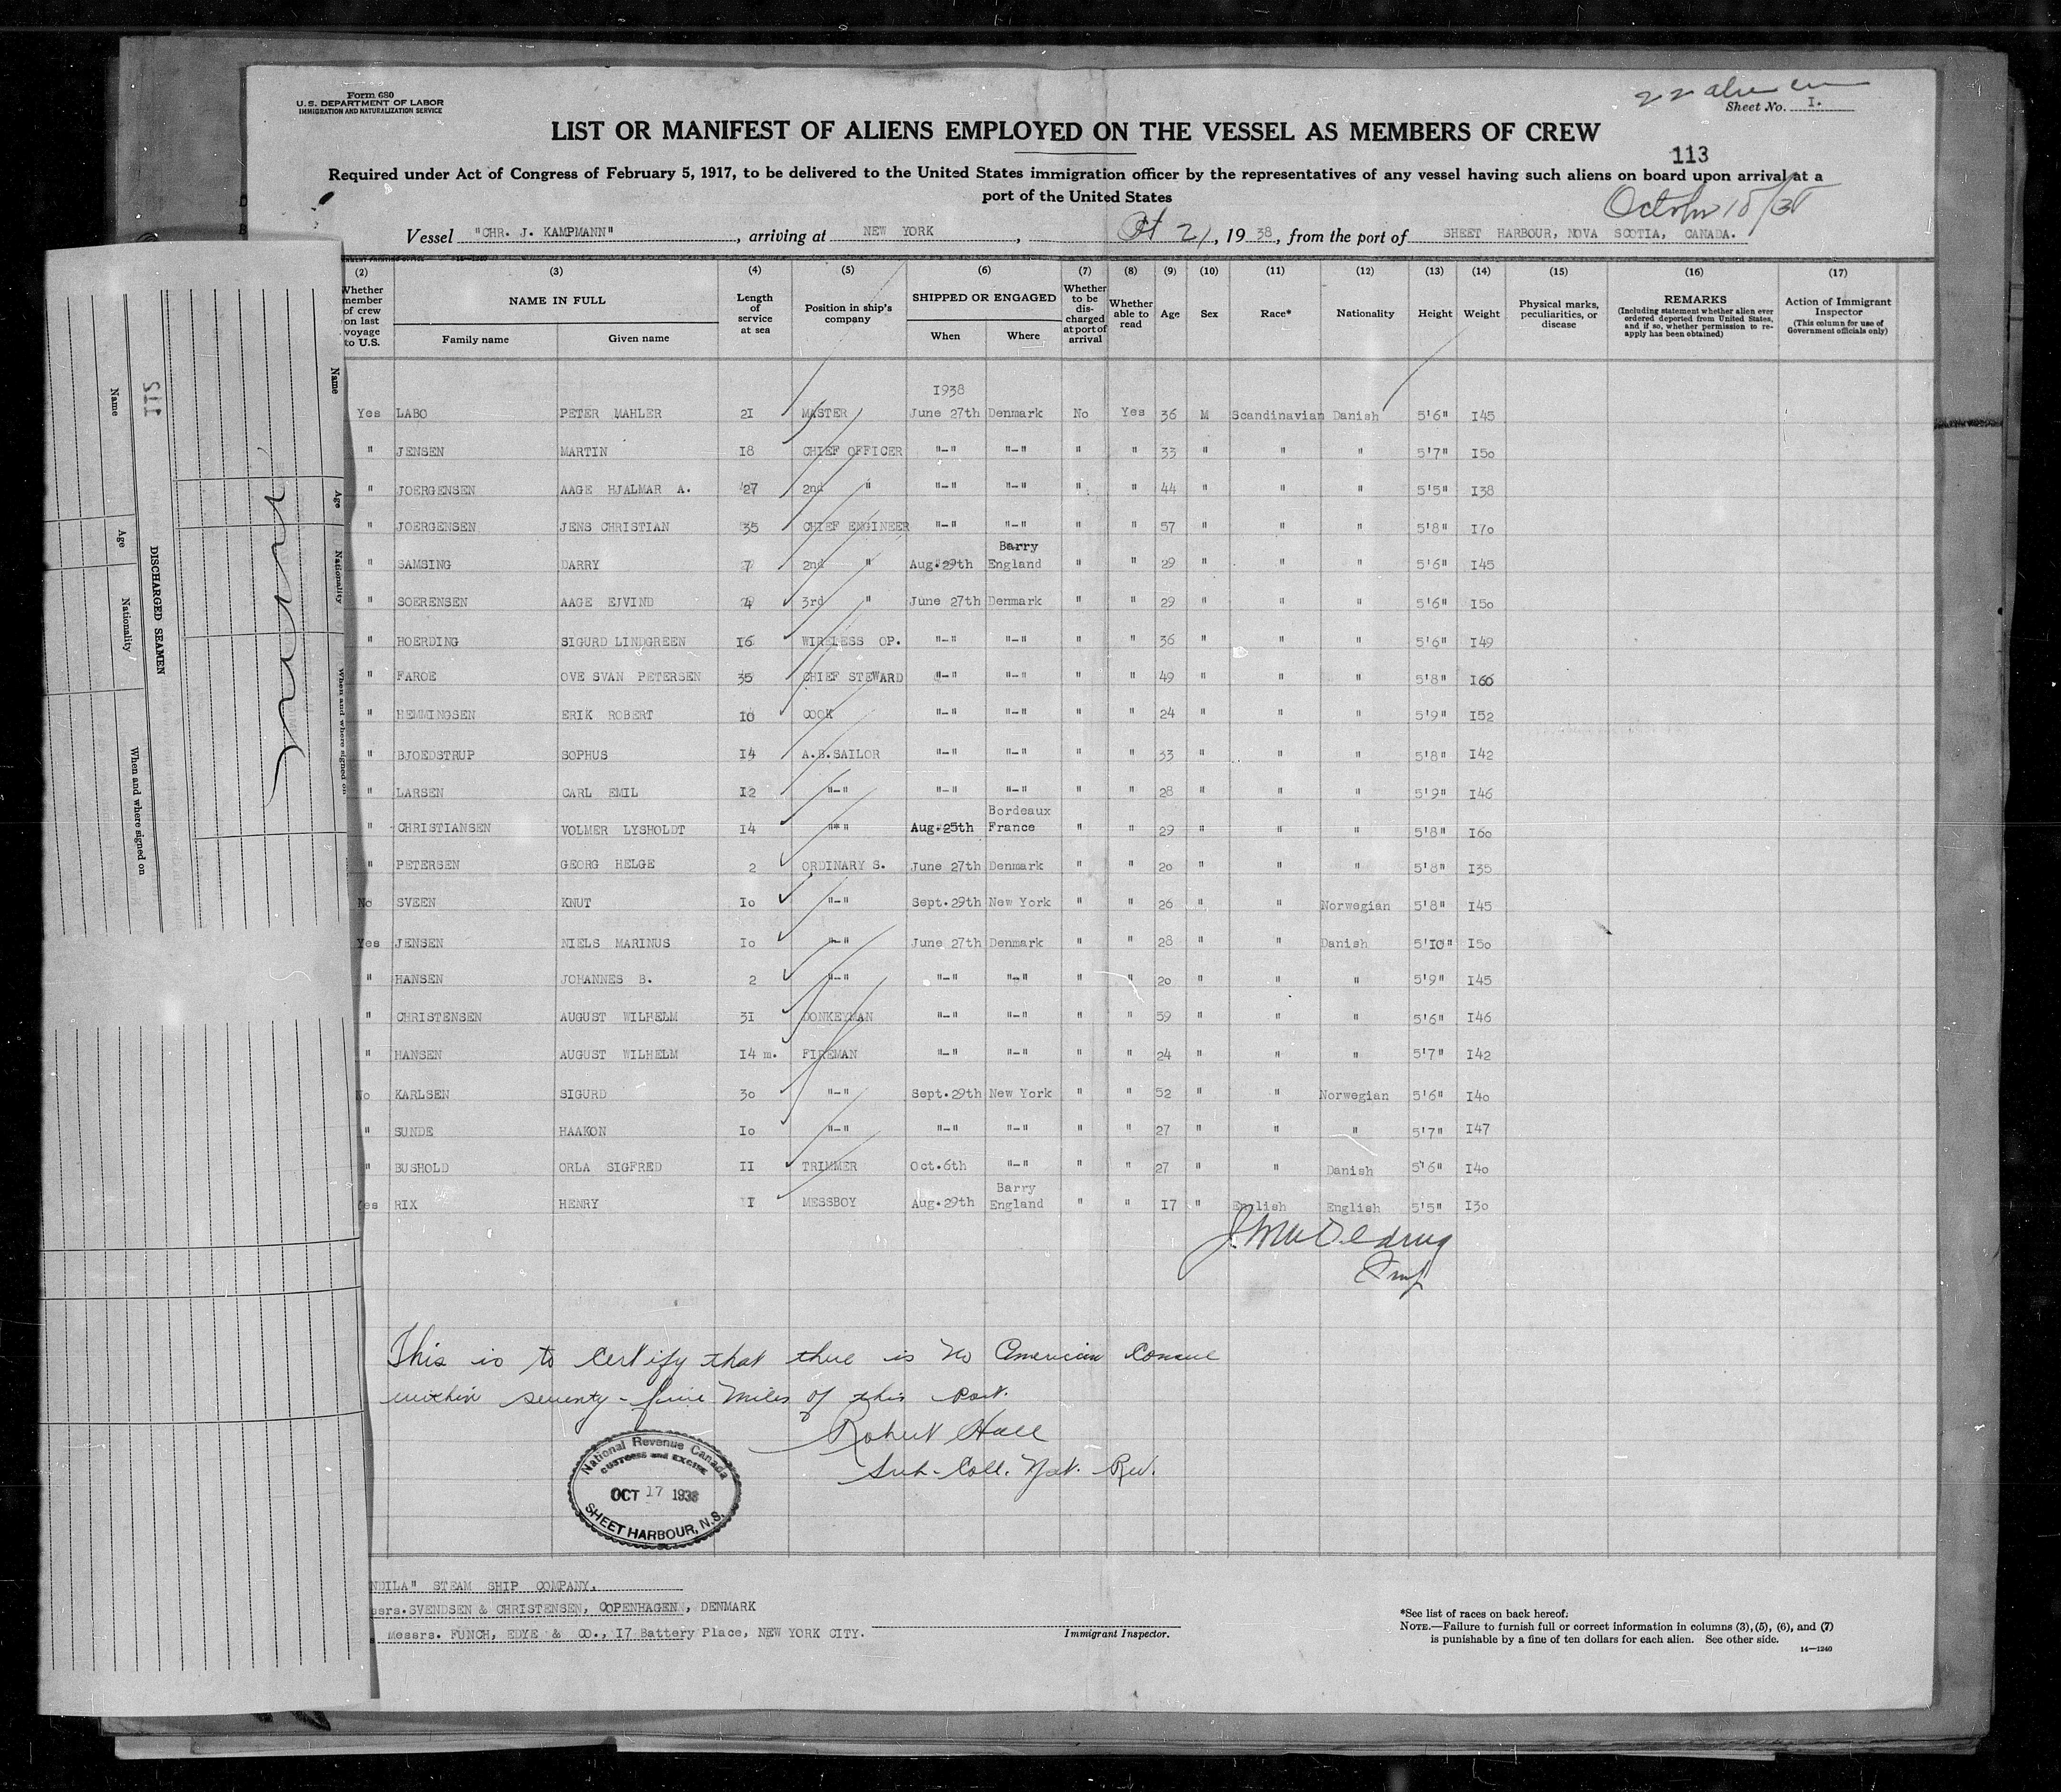 Form 680
U.S. DEPARTMENT OF LABOR
IMMIGRATION AND NATURALIZATION SERVICE
Sheet No. I.
LIST OR MANIFEST OF ALIENS EMPLOYED ON THE VESSEL AS MEMBERS OF CREW
113
Required under Act of Congress of February 5, 1917, to be delivered to the United States immigration officer by the representatives of any vessel having such aliens on board upon arrival at a
port of the United States
Vessel "CHR. J. KAMPMANN", arriving at NEW YORK, Oct 21, 1938, from the port of SHEET HARBOUR, NOVA SCOTIA, CANADA.
(2) (3) (4) (5) (6) (7) (8) (9) (10) (11) (12) (13) (14) (15) (16) (17)
Whether member of crew on last voyage to U.S. NAME IN FULL Family name Given name Length of service at sea Position in ship's company SHIPPED OR ENGAGED When Where Whether to be discharged at port of arrival Whether able to read Age Sex Race* Nationality Height Weight Physical marks, peculiarities, or disease REMARKS (Including statement whether alien ever ordered deported from United States, and if so, whether permission to re-apply has been obtained) Action of Immigrant Inspector (This column for use of Government officials only)
I938
Yes LABO PETER MAHLER 2I MASTER June 27th Denmark No Yes 36 M Scandinavian Danish 5'6" I45
" JENSEN MARTIN I8 CHIEF OFFICER "-" "-" " " 33 " " " 5'7" I50
" JOERGENSEN AAGE HJALMAR A. 27 2nd " "-" "-" " " 44 " " " 5'5" I38
" JOERGENSEN JENS CHRISTIAN 35 CHIEF ENGINEER "-" "-" " " 57 " " " 5'8" I70
Barry
" SAMSING DARRY 7 2nd " Aug.29th England " " 29 " " " 5'6" I45
" SOERENSEN AAGE EJVIND 4 3rd " June 27th Denmark " " 29 " " " 5'6" I50
" HOERDING SIGURD LINDGREEN I6 WIRELESS OP. "-" "-" " " 36 " " " 5'6" I49
" FAROE OVE SVAN PETERSEN 35 CHIEF STEWARD "-" "-" " " 49 " " " 5'8" I60
" HEMMINGSEN ERIK ROBERT I0 COOK "-" "-" " " 24 " " " 5'9" I52
" BJOEDSTRUP SOPHUS I4 A.B.SAILOR "-" "-" " " 33 " " " 5'8" I42
" LARSEN CARL EMIL I2 "-" "-" "-" " " 28 " " " 5'9" I46
Bordeaux
" CHRISTIANSEN VOLMER LYSHOLDT I4 "-" Aug.25th France " " 29 " " " 5'8" I60
" PETERSEN GEORG HELGE 2 ORDINARY S. June 27th Denmark " " 20 " " " 5'8" I35
No SVEEN KNUT I0 "-" Sept.29th New York " " 26 " " Norwegian 5'8" I45
Yes JENSEN NIELS MARINUS I0 "-" June 27th Denmark " " 28 " " Danish 5'I0" I50
" HANSEN JOHANNES B. 2 "-" "-" "-" " " 20 " " " 5'9" I45
" CHRISTENSEN AUGUST WILHELM 3I DONKEYMAN "-" "-" " " 59 " " " 5'6" I46
" HANSEN AUGUST WILHELM I4 m. FIREMAN "-" "-" " " 24 " " " 5'7" I42
No KARLSEN SIGURD 30 "-" Sept.29th New York " " 52 " " Norwegian 5'6" I40
" SUNDE HAAKON I0 "-" "-" "-" " " 27 " " " 5'7" I47
" BUSHOLD ORLA SIGFRED II TRIMMER Oct.6th "-" " " 27 " " Danish 5'6" I40
Barry
Yes RIX HENRY I MESSBOY Aug.29th England " " I7 " English English 5'5" I30
This is to certify that there is no American Consul
within seventy-five miles of this Port.
Robert Hall
Sub-Coll. Nat. Rev.
National Revenue Canada
CUSTOMS and EXCISE
OCT 17 1938
SHEET HARBOUR, N.S.
STEAM SHIP COMPANY.
SVENDSEN & CHRISTENSEN, COPENHAGEN, DENMARK
Messrs. FUNCH, EDYE & CO., I7 Battery Place, NEW YORK CITY.
Immigrant Inspector.
*See list of races on back hereof.
NOTE.—Failure to furnish full or correct information in columns (3), (5), (6), and (7)
is punishable by a fine of ten dollars for each alien. See other side.
14—1240
112
DISCHARGED SEAMEN
Name Age Nationality When and where signed on
Name Age Nationality When and where signed on